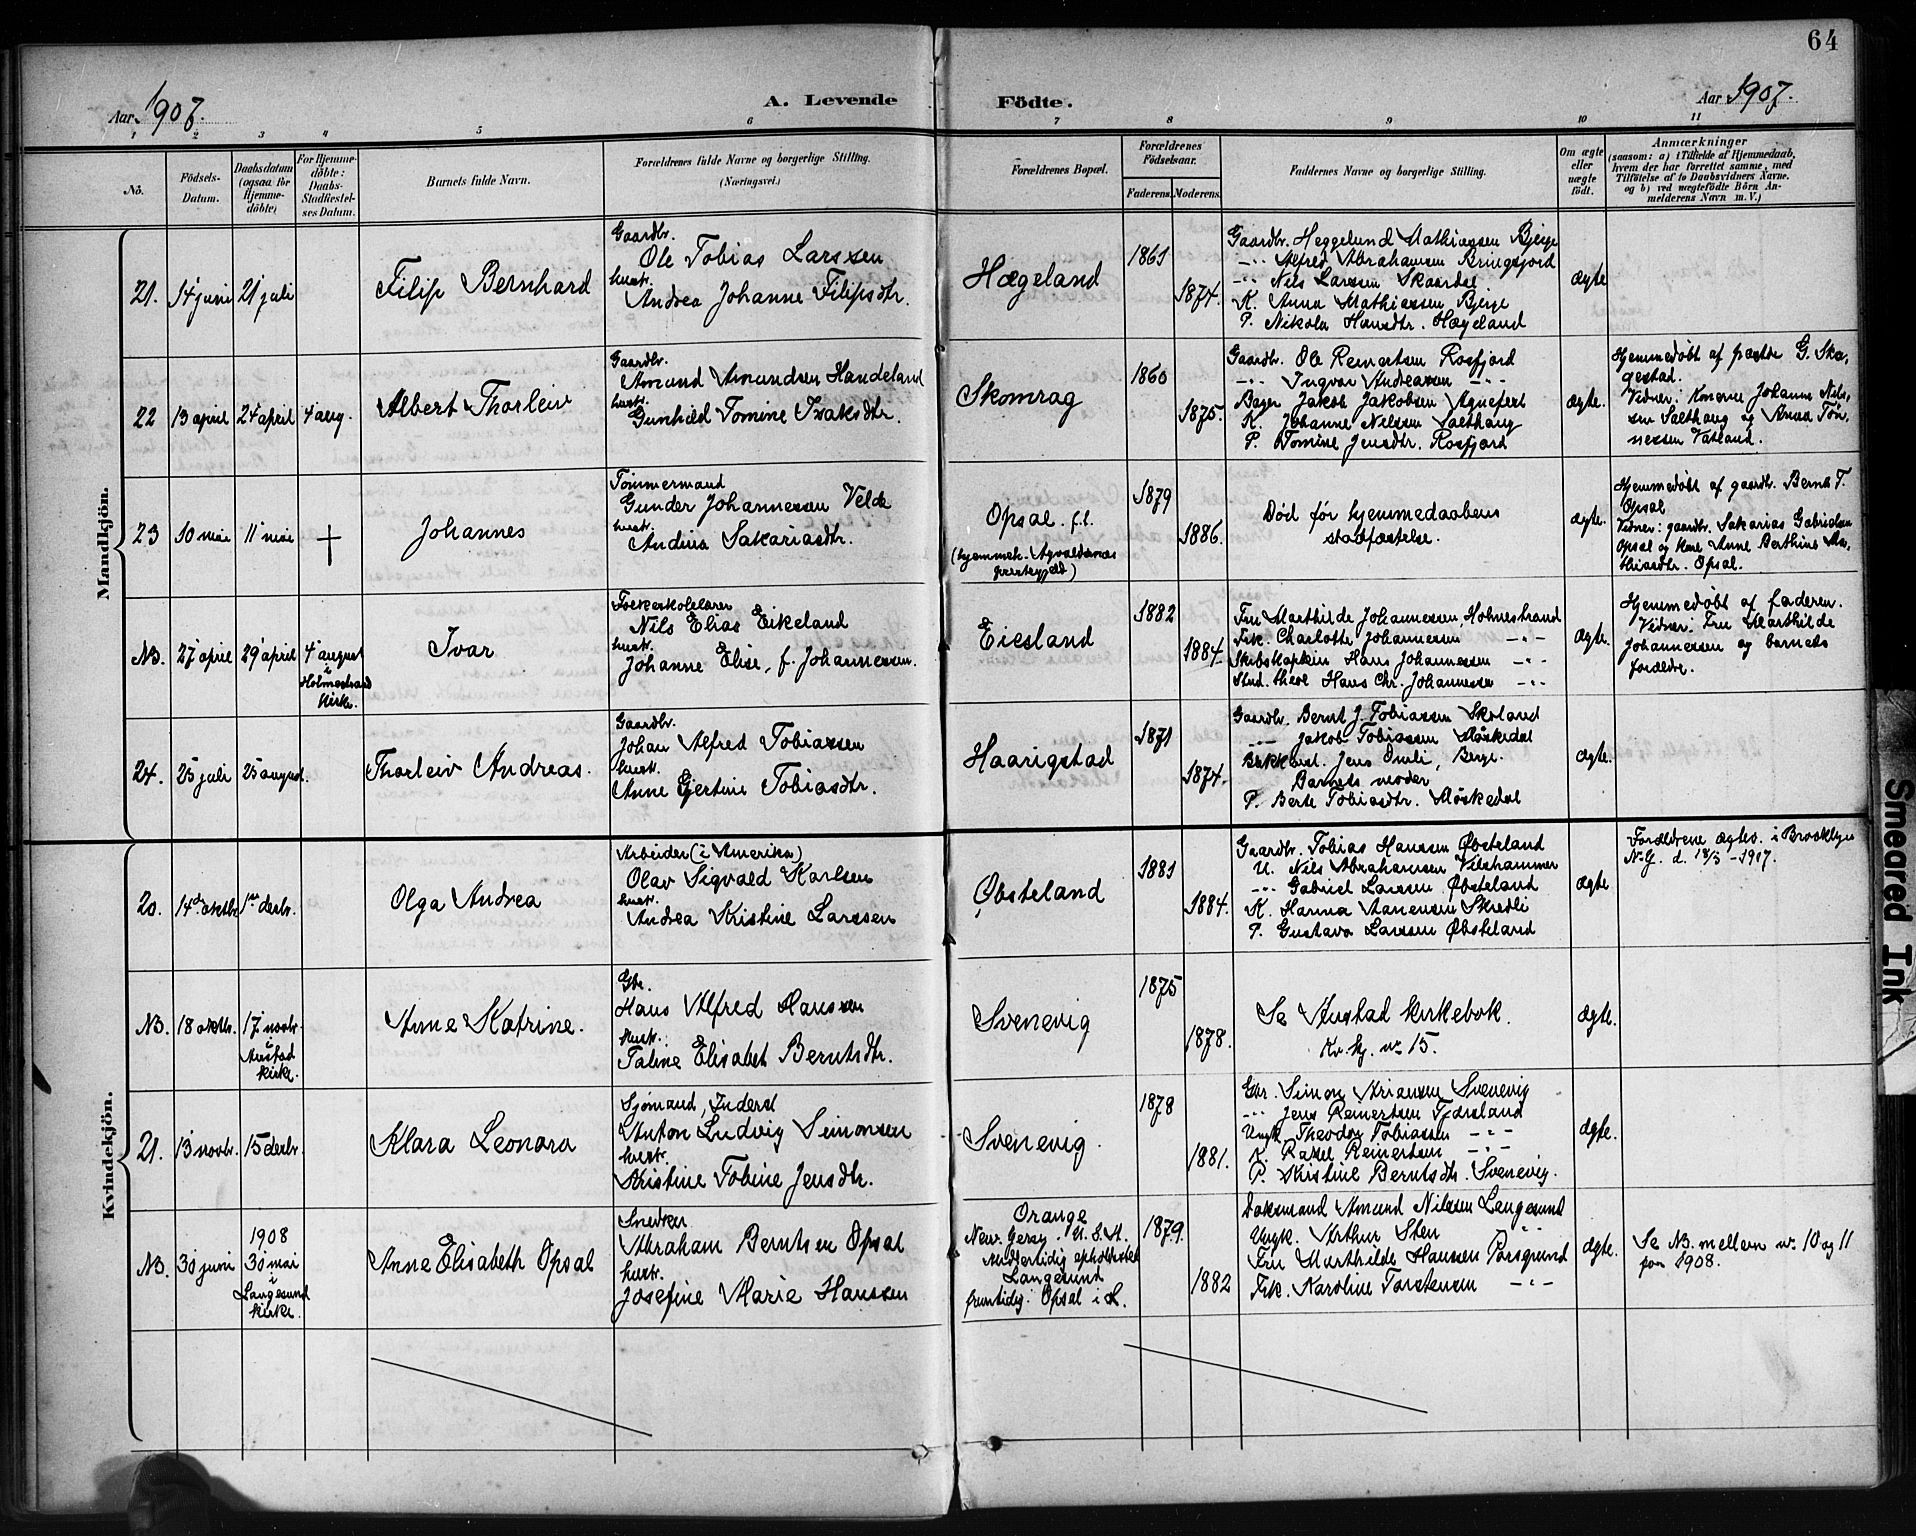 64
Aar 1907.
A. Levende
Födte.
Aar 1907.
1 2 3 4 5 6 7 8 9 10 11
Nô.
Födsels-Datum.
Daabsdatum (ogsaa for Hjemme-döbte)
For Hjemme-döbte: Daabs-Stadfæstel-ses Datum.
Barnets fulde Navn.
Forældrenes fulde Navne og borgerlige Stilling.
(Næringsvei.)
Forældrenes Bopæl.
Forældrenes Födselsaar.
Faderens. Moderens.
Faddernes Navne og borgerlige Stilling.
Om ægte eller uægte födt.
Anmærkninger
(saasom: a) i Tilfælde af Hjemmedaab,
hvem der har forrettet samme, med
Tilföielse af to Daabsvidners Navne.
og b) ved uægtefödte Börn An-
melderens Navn m. V.)
Mandkjön.
21. 14 juni 21 juli
Filip Bernhard
Gaardbr.
Ole Tobias Larssen
hustr.
Andrea Johanne Filipsdtr.
Hægeland
1861
1874.
Gaardbr. Heggelund Mathiassen Bjerge
-"- Alfred Abrahamsen Bringsjord
-"- Nils Larssen Skaardal
K. Anna Mathiassen Bjerge
P. Nikola Hansdtr. Hægeland
ægte
22 13 april 24 april 4 aug.
Albert Thorleiv
Gaardbr.
Amund Amundsen Handeland
hustr.
Gunhild Tomine Isaksdtr.
Skomrag
1860
1875.
Gaardbr. Ole Reinertsen Rosfjord
-"- Ingvar Andreassen -"-
Bager Jakob Jakobsen Agnefest
K. Johanne Nilssen Salthaug
P. Tomine Jensdtr. Rosfjord
ægte.
Hjemmedøbt af G. Ska-
gestad.
Vidner: Konerne Johanne Nils-
sen Salthaug og Anna Tøn-
nessen Vatland.
23 10 mai 11 mai †
Johannes
Tømmermand
Gunder Johannessen Velde
hustr.
Andrea Sakariasdtr.
Opsal. f.t.
(hjemmeh. Aqvaldsnes
prestegjeld)
1879
1886.
Død før hjemmedaabens
stadfæstelse.
ægte.
Hjemmedøbt af gaardbr. Bernt T.
Opsal
Vidner: gaardbr. Sakarias Gabrielsen
Opsal og kone Anne Berthine Ma-
thiasdtr. Opsal.
NB. 27 april 29 april 4 august
i
Holmestrand
kirke.
Ivar
Folkeskolelærer
Nils Elias Eikeland
hustr.
Johanne Elise, f. Johannessen.
Eiesland
1882
1884.
Fru Marthilde Johannessen, Holmestrand
Frk. Charlotte Johannessen -"-
Skibskaptein Hans Johannessen -"-
Stud. theol Hans Chr. Johannessen -"-
ægte.
Hjemmedøbt af faderen.
Vidner: Fru Marthilde
Johannessen og barnets
forældre.
24. 25 juli 25 august.
Thorleiv Andreas.
Gaardbr.
Johan Alfred Tobiassen
hustr.
Anne Gjertine Tobiasdtr.
Haarigstad
1871
1874.
Gaardbr. Bernt J. Tobiassen Skoland
-"- Jakob Tobiassen Møskedal
Jens Omli, Berge.
Barnets moder
P. Berte Tobiasdtr. Møskedal
ægte.
Kvindekjön.
20. 14de oktbr. 1ste decbr.
Olga Andrea
Arbeider (i Amerika)
Olav Sigvald Karlsen
hustr.
Andrea Kristine Larssen
Øbsteland
1881
1884.
Gaardbr. Tobias Hanssen Øbsteland
U. Nils Abrahamsen Vilshammer
-"- Gabriel Larssen Øbsteland
K. Hanna Aanensen Skredli
P. Gustava Larssen Øbsteland
ægte
Forældrene ægtev. i Brooklyn
N.Y. d. 18/5 - 1907.
NB. 18 oktbr. 17 novbr.
i
Austad
kirke.
Anne Katrine.
Gbr.
Hans Alfred Hanssen
hustr.
Taline Elisabet Berntsdtr.
Svenevig
1875
1878.
Se Austad kirkebok.
Kv. kj. nr. 15.
ægte.
21. 13 novbr. 15 decbr.
Klara Leonora
Sjømand, Inderst
Anton Ludvig Simonsen
hustr.
Kristine Tobine Jensdtr.
Svenevig.
1878
1881.
Gbr. Simon Ariansen Svenevig
-"- Jens Reinertsen Fjorsland
Ungk. Theodor Tobiassen -"-
K. Rakel Reinertsen -"-
P. Kristine Berntsdtr. Svenevig.
ægte.
NB. 30 juni
1908
30 mai
i
Langesund
kirke.
Anne Elisabeth Opsal
Snedker
Abraham Berntsen Opsal
hustr.
Josefine Marie Hanssen
Orange
New. Jersy. U. S. A.
Midlertidig opholdssted
Langesund
fremtidig: Opsal i L.
1879.
1882
Doksmand Amund Nilssen Langesund
Ungk. Arthur Sten -"-
Fru Marthilde Hanssen Porsgrund
Frk. Karoline Torstensen -"-
ægte.
Se NB. mellem nr. 10 og 11
for 1908.
Smeared Ink